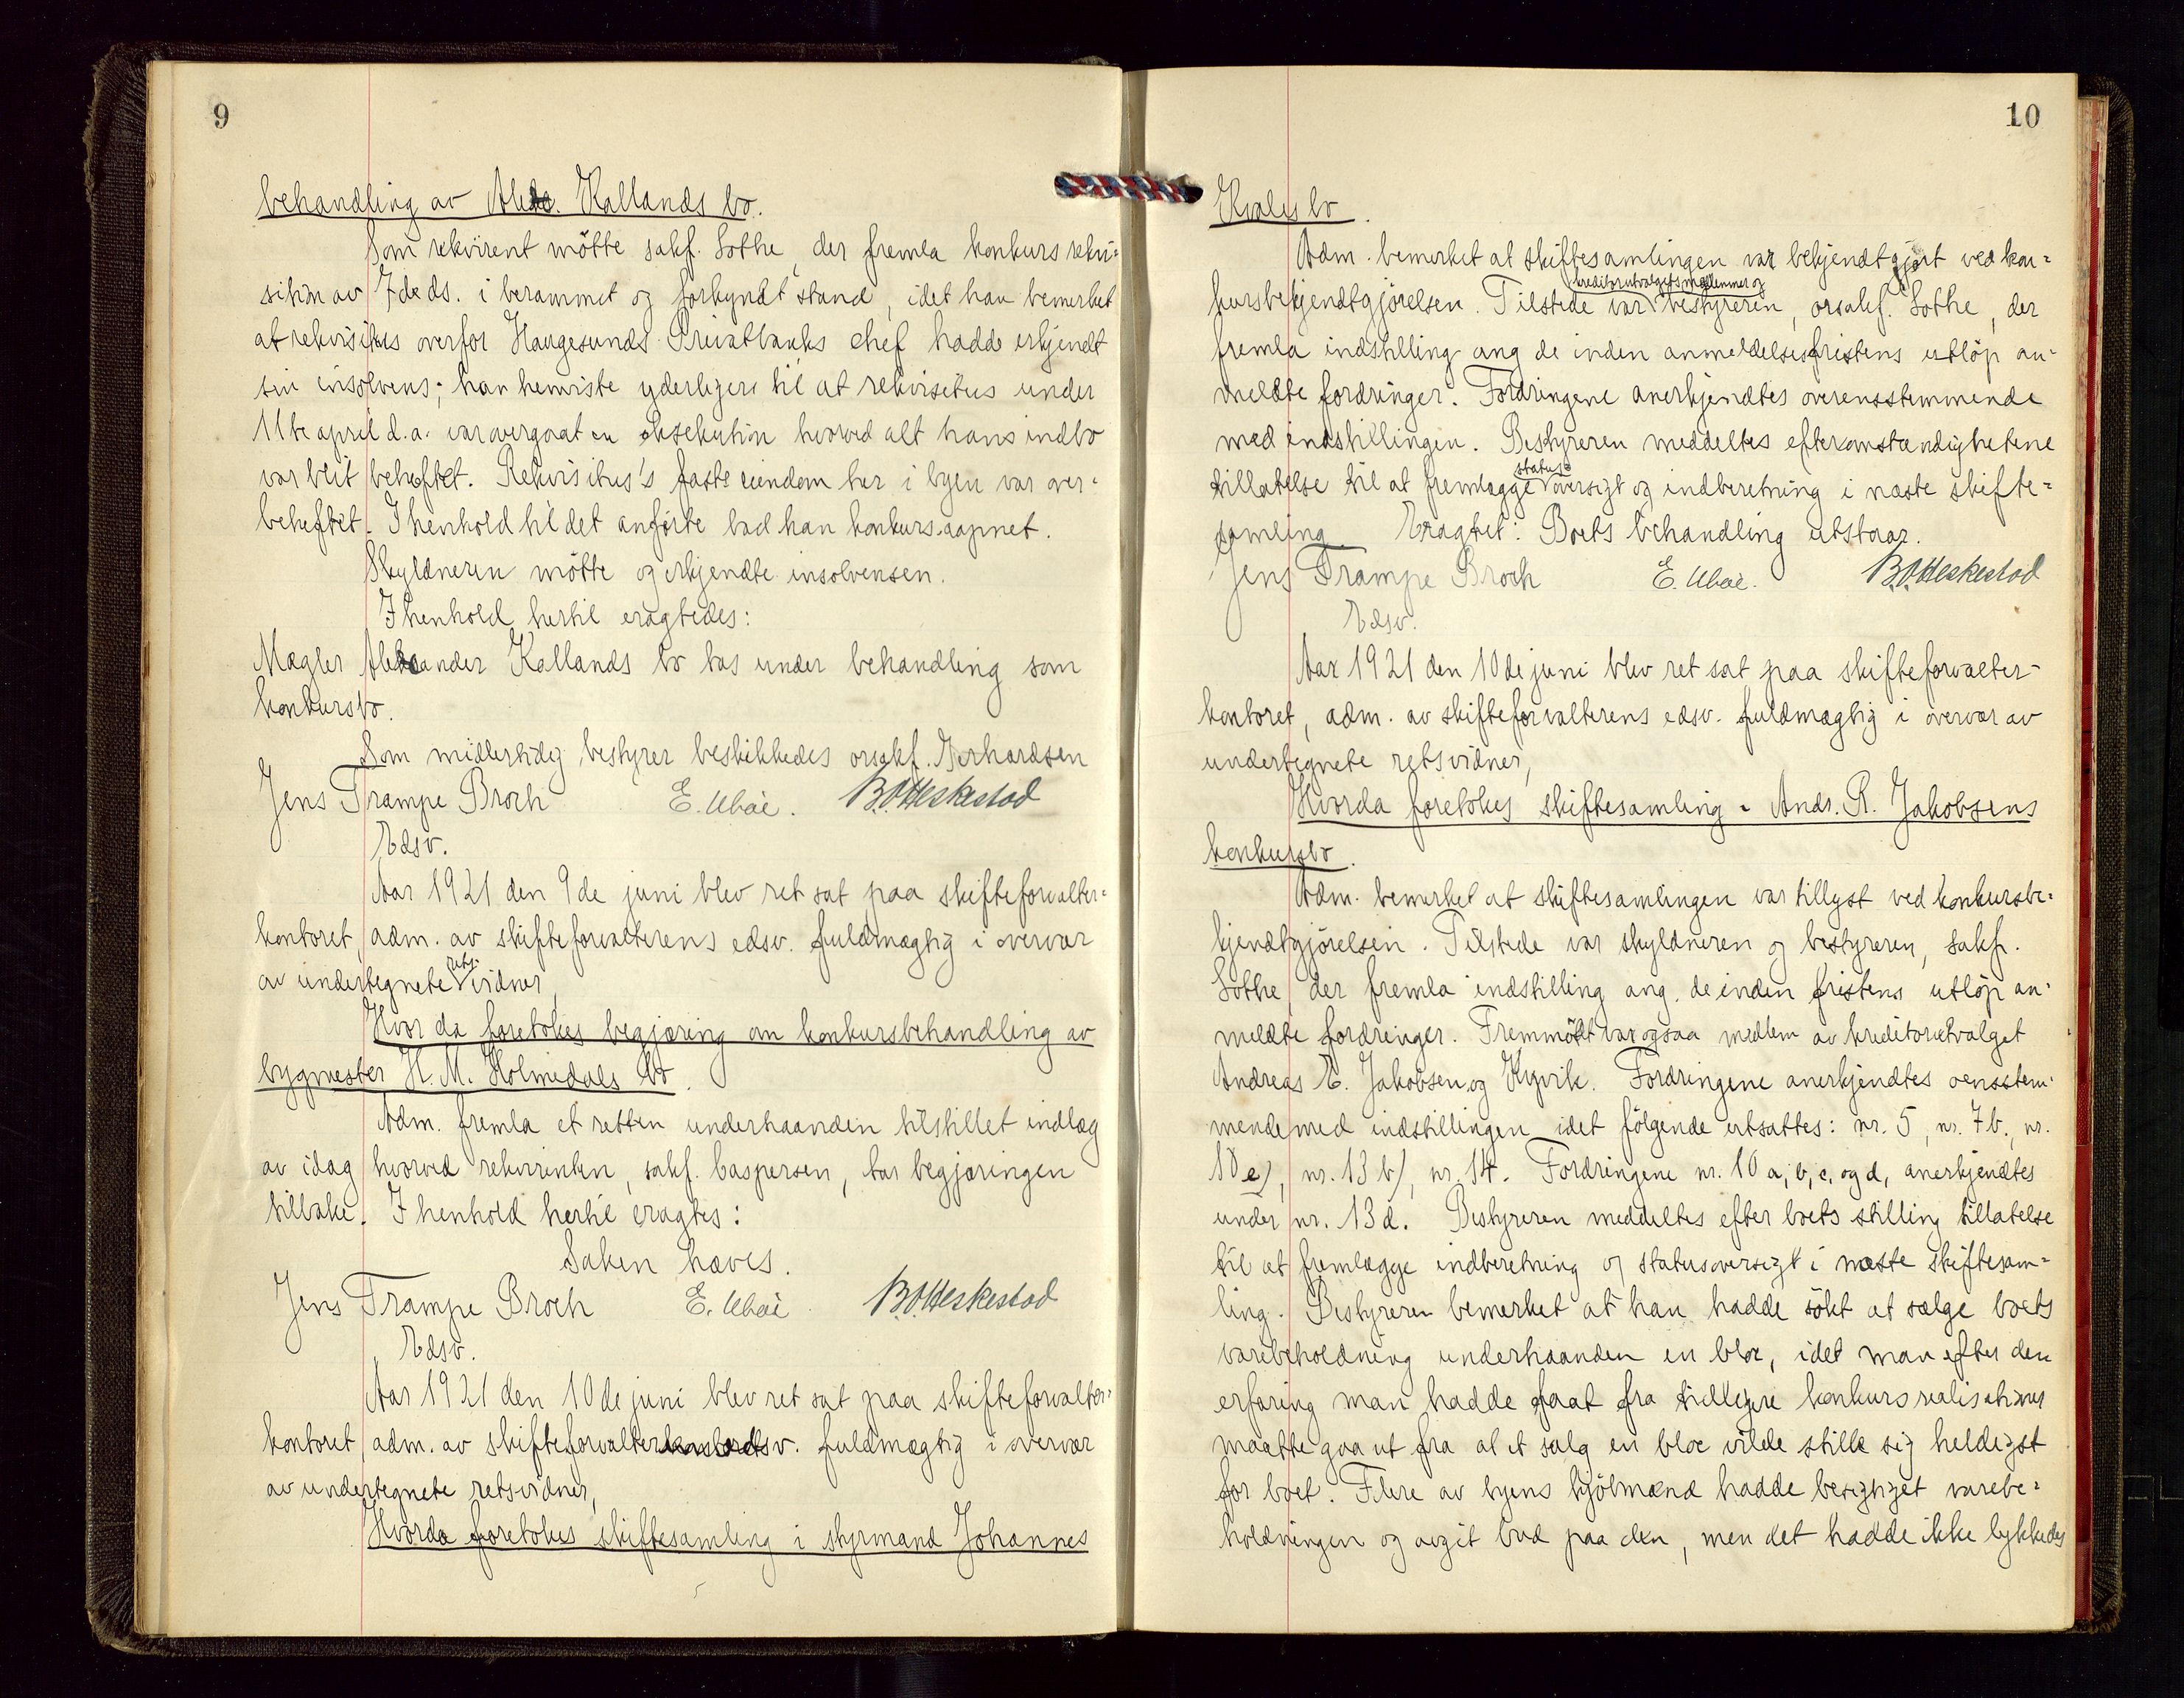 9
behandling av Aleks. Kallands bo.
Som rekvirent mötte sakf. Sothe, der fremla konkursrekvi-
sition av 7de ds. i berammet og forkyndt stand, idet han bemerket
at rekvisitus overfor Haugesunds Privatbanks chef hadde erkjendt
sin insolvens; han henviste yderligere til at rekvisitus under
11te april d.a. var overgaat en eksekution hvorved alt hans indbo
var blit beheftet. Rekvisitus's faste eiendom her i byen var over-
beheftet. I henhold til det anförte bad han konkurs aapnet.
Skyldneren mötte og erkjendte insolvensen.
I henhold hertil eragtedes:
Mægler Aleksander Kallands bo tas under behandling som
konkursbo.
Som midlertidig bestyrer beskikkedes orsakf. Gerhardsen
Jens Trampe Broch E. Ubøe. B.O. Heskestad
Edsv.
Aar 1921 den 9de juni blev ret sat paa skifteforvalter-
kontoret, adm. av skifteforvalterens edsv. fuldmægtig i overvær
av undertegnete rets-
vidner,
Hvor da foretokes begjæring om konkursbehandling av
bygmester H. M. Holmedals bo.
Adm. fremla et retten underhaanden tilstillet indlæg
av idag hvorved rekvirenten, sakf. Caspersen, tar begjæringen
tilbake. I henhold hertil eragtes:
Saken hæves.
Jens Trampe Broch E. Ubøe B.O. Heskestad
Edsv.
Aar 1921 den 10de juni blev ret sat paa skifteforvalter-
kontoret, adm. av skifteforvalter edsv. fuldmægtig i overvær
av undertegnete retsvidner,
Hvorda foretokes skiftesamling i styrmand Johannes
10
Kvales bo.
Adm. bemerket at skiftesamlingen var bekjendtgjort ved kon-
kreditorutvalgets medlemmer og
kursbekjendtgjörelsen. Tilstede var bestyreren, orsakf. Sothe, der
fremla indstilling ang de inden anmeldelsesfristens utlöp an-
meldte fordringer. Fordringene anerkjendtes overensstemmende
med indstillingen. Bestyreren meddeltes efter omstændighetene
status
tillatelse til at fremlægge oversigt og indberetning i næste skifte-
samling. Eragtet: Boets behandling utstaar.
Jens Trampe Broch E. Ubøe. B.O. Heskestad
Edsv.
Aar 1921 den 10de juni blev ret sat paa skifteforvalter-
kontoret, adm. av skifteforvalterens edsv. fuldmægtig i overvær av
undertegnete retsvidner,
Hvorda foretokes skiftesamling i Andr. R. Jakobsens
konkursbo.
Adm. bemerket at skiftesamlingen var tillyst ved konkursbe-
kjendtgjörelsen. Tilstede var skyldneren og bestyreren, sakf.
Sothe der fremla indstilling ang. de inden fristens utlöp an-
meldte fordringer. Fremmött var ogsaa medlem av kreditorutvalget
Andreas E. Jakobsen og Kyvik. Fordringene anerkjendtes oensstem-
mende med indstillingen idet fölgende utsattes: nr. 5, nr. 7b., nr.
10 e), nr. 13 b), nr. 14. Fordringene nr. 10 a, b, c, og d, anerkjendtes
under nr. 13 d. Bestyreren meddeltes efter boets stilling tillatelse
til at fremlægge indberetning og statusoversigt i næste skiftesam-
ling. Bestyreren bemerket at han hadde sökt at sælge boets
varebeholdning underhaanden en bloc, idet man efter den
erfaring man hadde faat fra tidligere konkursrealisationer
maatte gaa ut fra at et salg en bloc vilde stille sig heldigst
for boet. Flere av byens kjöbmænd hadde besigtiget varebe-
holdningen og avgit bud paa den, men det hadde ikke lykkedes